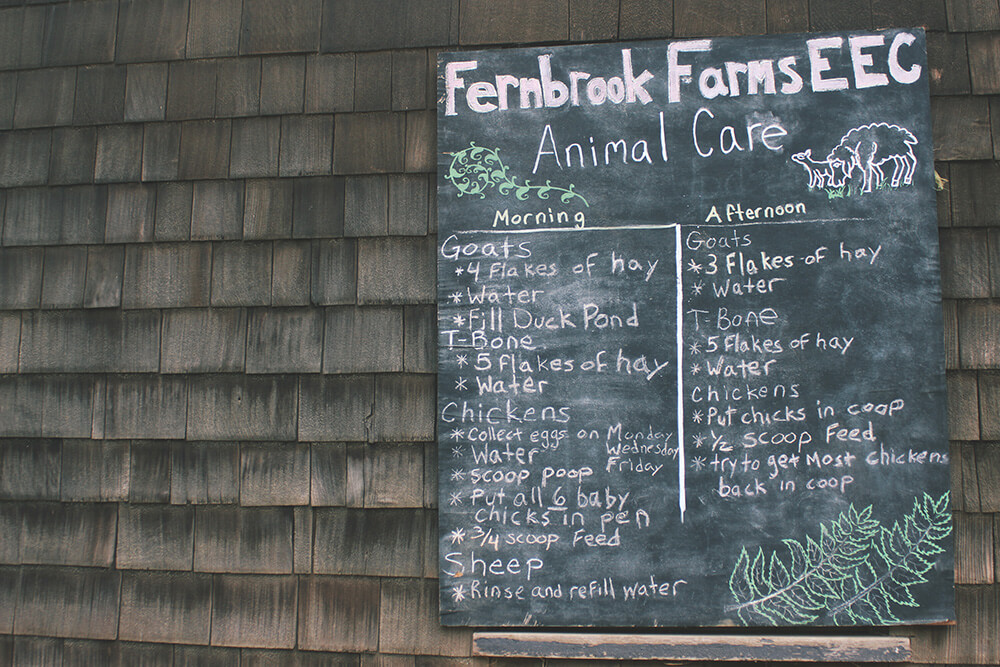 Fernbrook Farms EEC
Animal Care
Morning
Goats
*4 Flakes of hay
*Water
*Fill Duck Pond
T-Bone
*5 flakes of hay
*Water
Chickens
*Collect eggs on Monday
Wednesday
Friday
*Water
*Scoop poop
*Put all 6 baby
chicks in pen
*3/4 scoop Feed
Sheep
*Rinse and refill water
Afternoon
Goats
*3 Flakes of hay
*Water
T-Bone
*5 flakes of hay
*Water
Chickens
*Put chicks in coop
*1/2 scoop Feed
*try to get Most chickens
back in coop